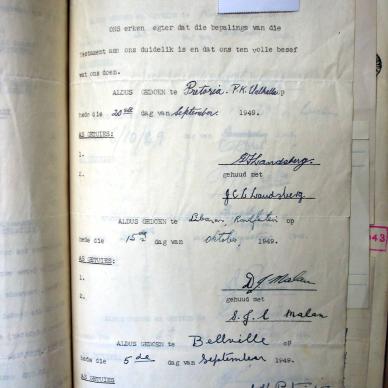 ONS erken egter dat die bepalings van die
testament aan ons duidelik is en dat ons ten volle besef
wat ons doen.
ALDUS GEDOEN te Pretoria P.K. op
hede die 20ste dag van September 1949.
AS GETUIES:
1.
2. gehuud met
J C L Landsberg
ALDUS GEDOEN te Libanon Randfontein op
hede die 15de dag van Oktober, 1949.
AS GETUIES:
1. D J Malan
2. gehuud met
S. J. C Malan
ALDUS GEDOEN te Bellville op
hede die 5de dag van September 1949.
AS GETUIES: